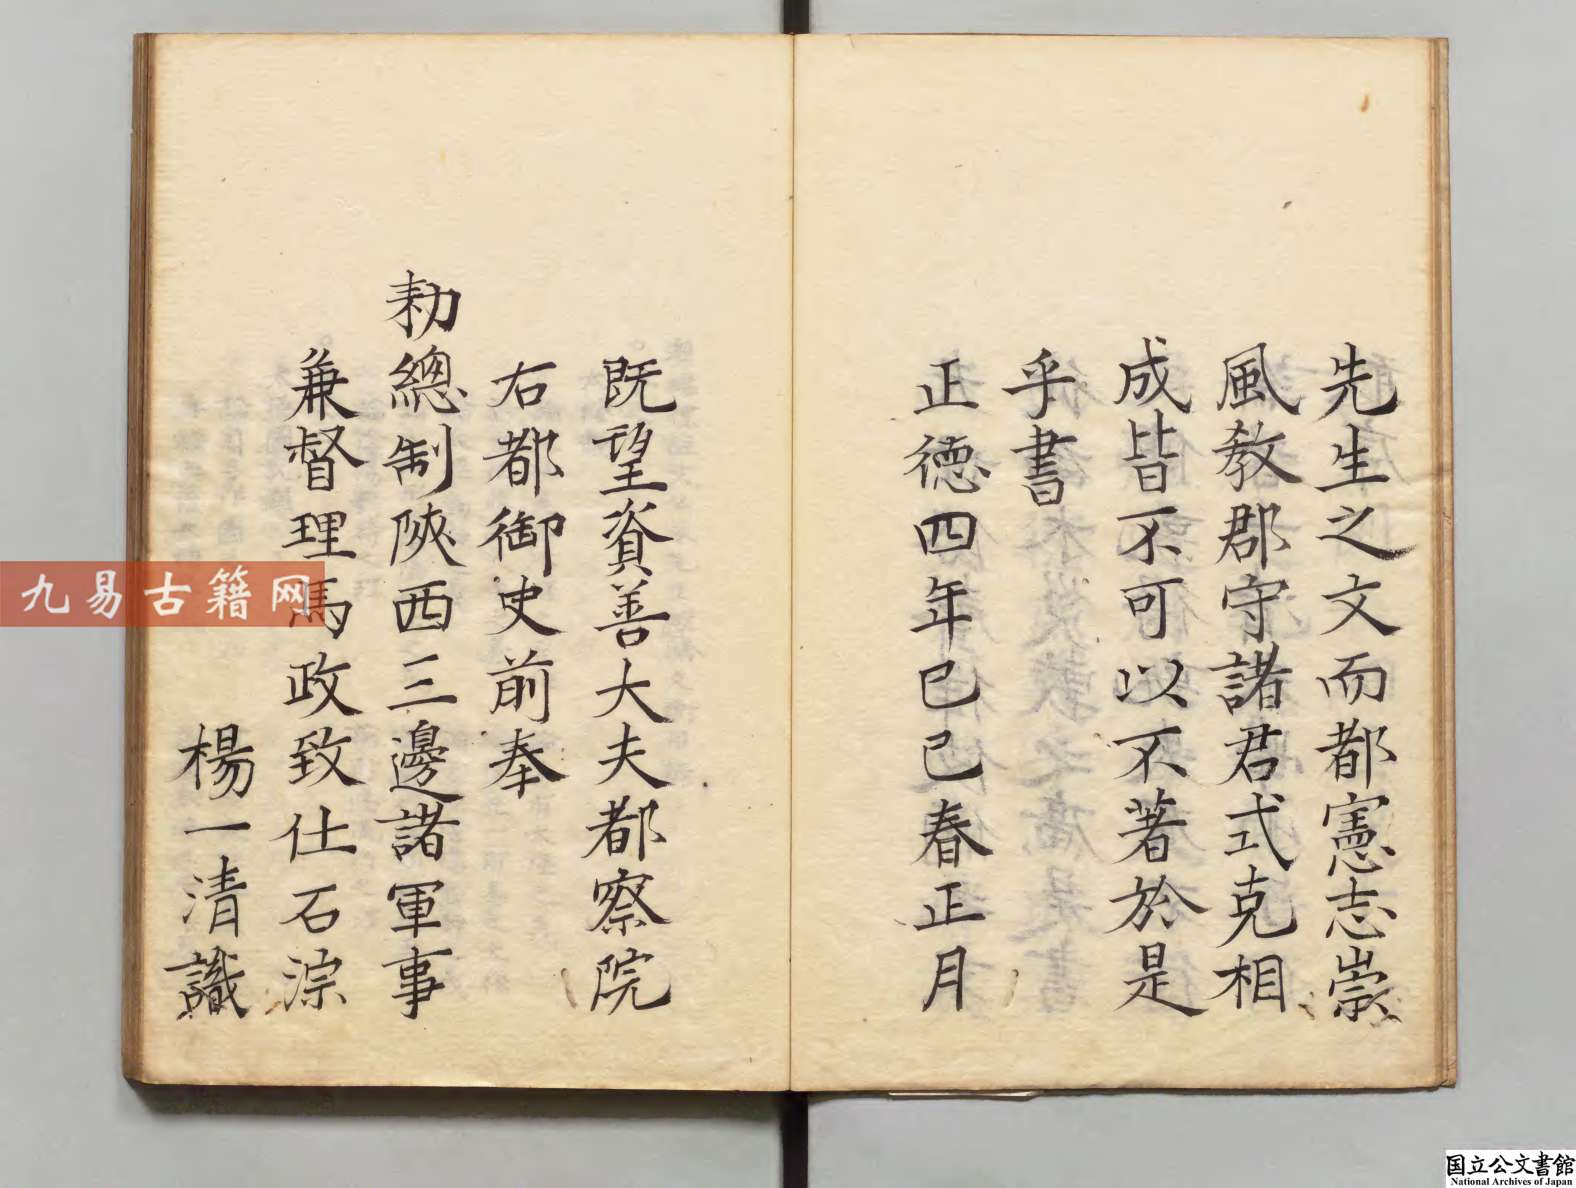 先生之文而都憲志崇
風教郡守諸君式克相
成皆不可以不著於是
乎書
正德四年己巳春正月
既望資善大夫都察院
右都御史前奉
勑總制陝西三邊諸軍事
兼督理馬政致仕石淙
楊一清識
九易古籍网
国立公文書館
National Archives of Japan